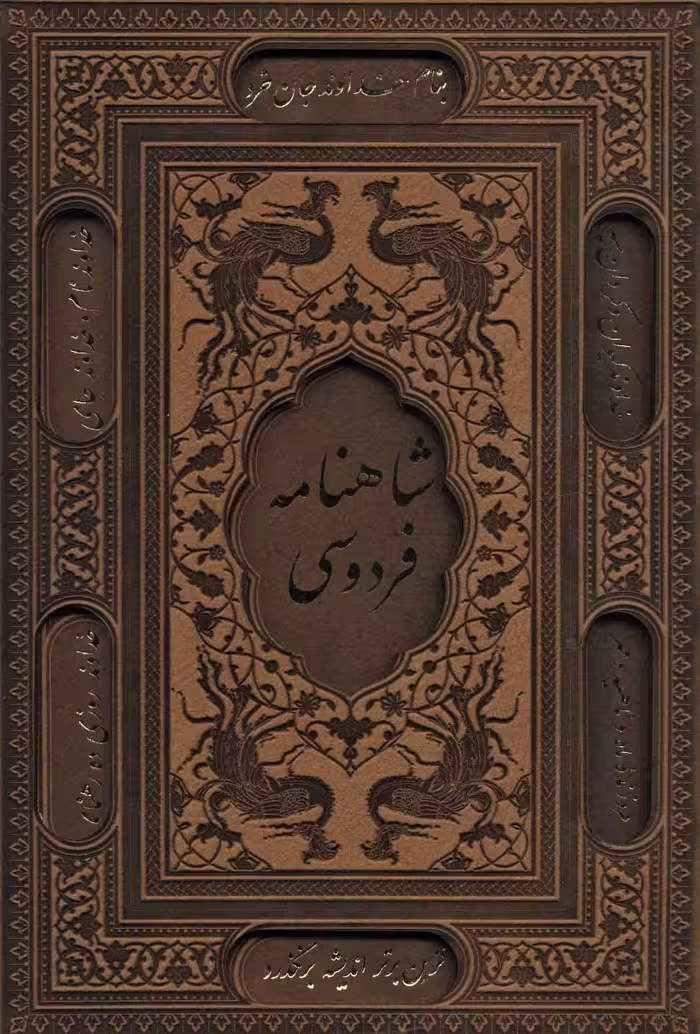 بنام خداوند جان خرد
کزین برتر اندیشه برنگذرد
خداوند نام خداوند جای
خداوند روزی ده رهنمای
شاهنامه
فردوسی